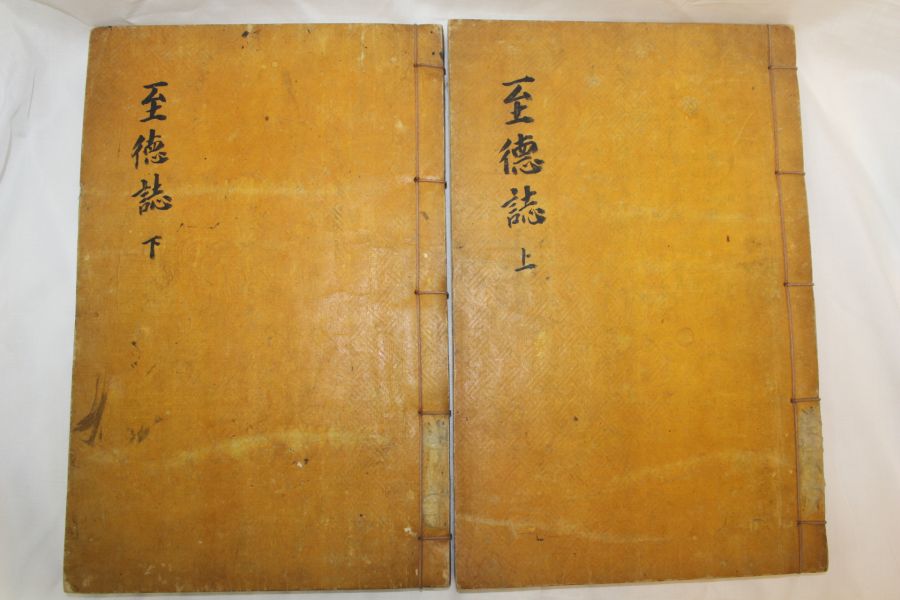 至德誌 上
至徳誌 下